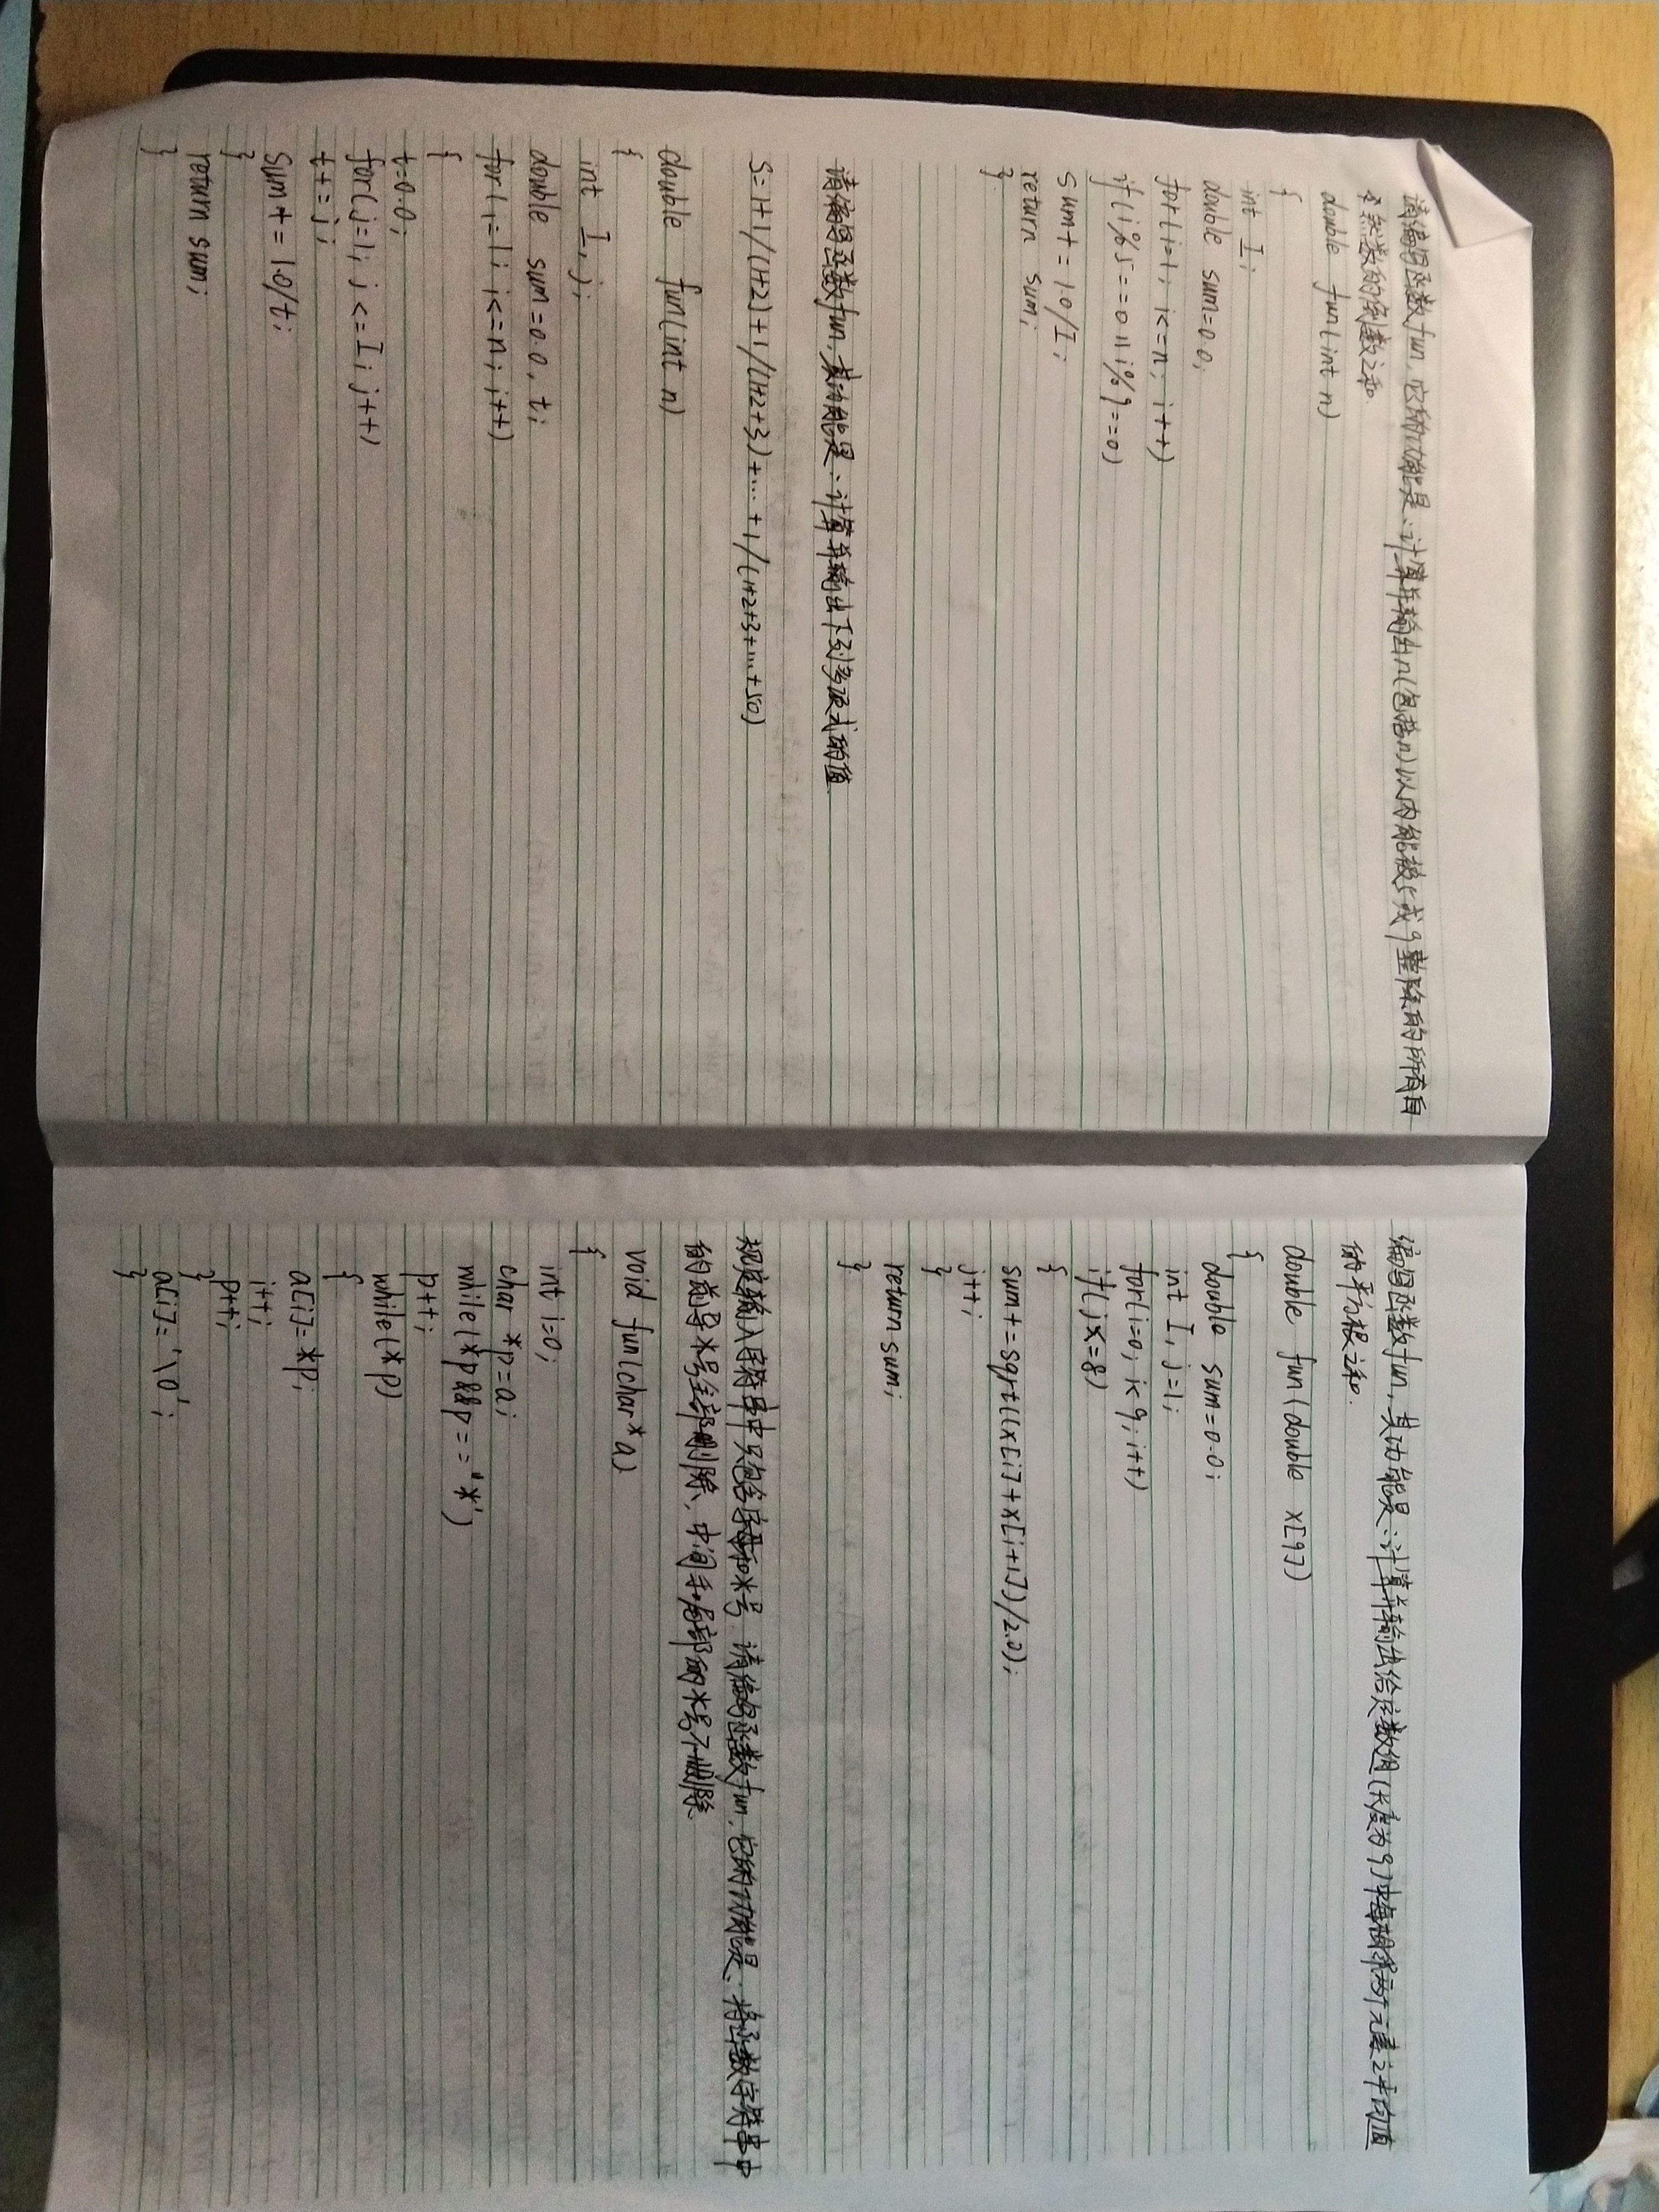 请编写函数fun,它的功能是:计算并输出n(包括n)以内能被5或9整除的所有自
然数的倒数之和.
double fun(int n)
{
int I;
double sum=0.0;
for(i=1; i<=n; i++)
if(i%5==0||i%9==0)
sum+=1.0/I;
return sum;
}
请编写函数fun,其功能是:计算并输出下列多项式的值
S=1+1/(1+2)+1/(1+2+3)+...+1/(1+2+3+...+50)
double fun(int n)
{
int I,j;
double sum=0.0,t;
for(i=1; i<=n; i++)
{
t=0.0;
for(j=1; j<=I; j++)
t+=j;
sum+=1.0/t;
}
return sum;
}
编写函数fun,其功能是:计算并输出给定数组(长度为9)中每相邻两个元素之平均值
的平方根之和.
double fun(double x[9])
{
double sum=0.0;
int I,j=1;
for(i=0; i<9; i++)
if(j<=8)
{
sum+=sqrt((x[i]+x[i+1])/2.0);
j++;
}
return sum;
}
规定输入字符串中只包含字母和*号.请编写函数fun,它的功能是:将函数字符串中
的前导*号全部删除、中间和尾部的*号不删除.
void fun(char*a)
{
int i=0;
char *p=a;
while(*p&&p=='*')
p++;
while(*p)
{
a[i]=*p;
i++;
p++;
}
a[i]='\0';
}